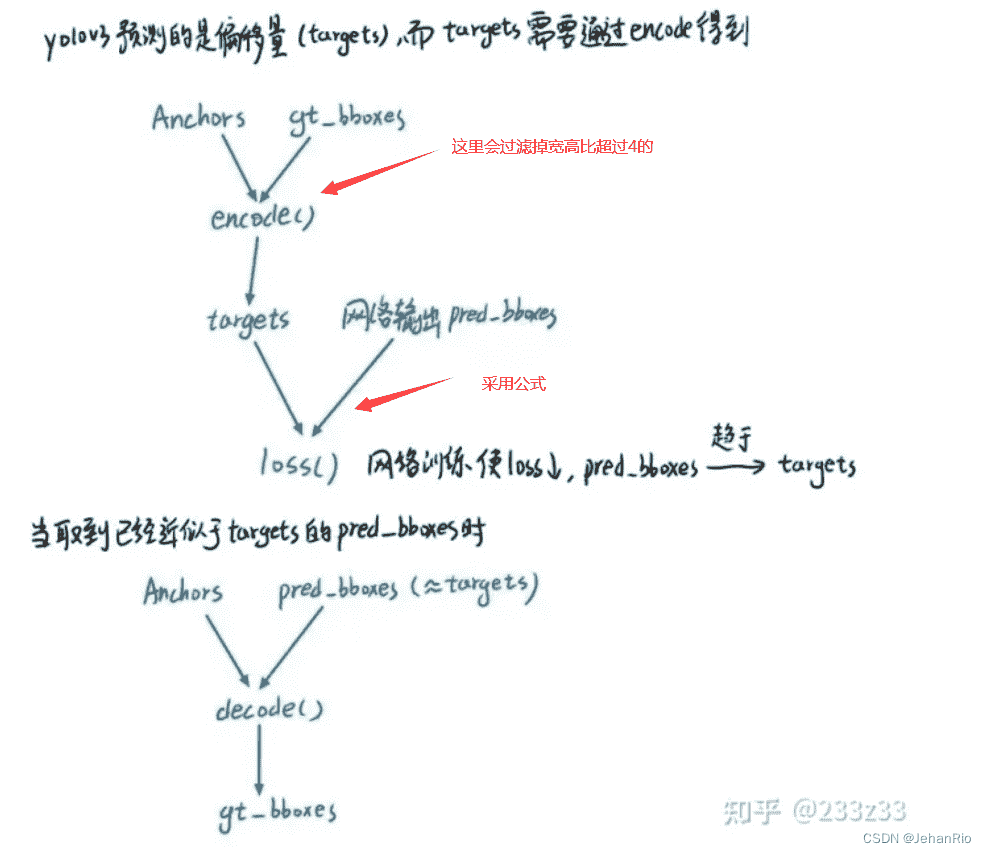 yolov3预测的是偏移量(targets),而targets需要通过encode得到
Anchors gt_bboxes
这里会过滤掉宽高比超过4的
encode()
targets 网络输出pred_bboxes
采用公式
loss() 网络训练、使loss↓, pred_bboxes 趋于→ targets
当取到已经近似于targets的pred_bboxes时
Anchors pred_bboxes (≈targets)
decode()
gt_bboxes
知乎 @233z33
CSDN @JehanRio